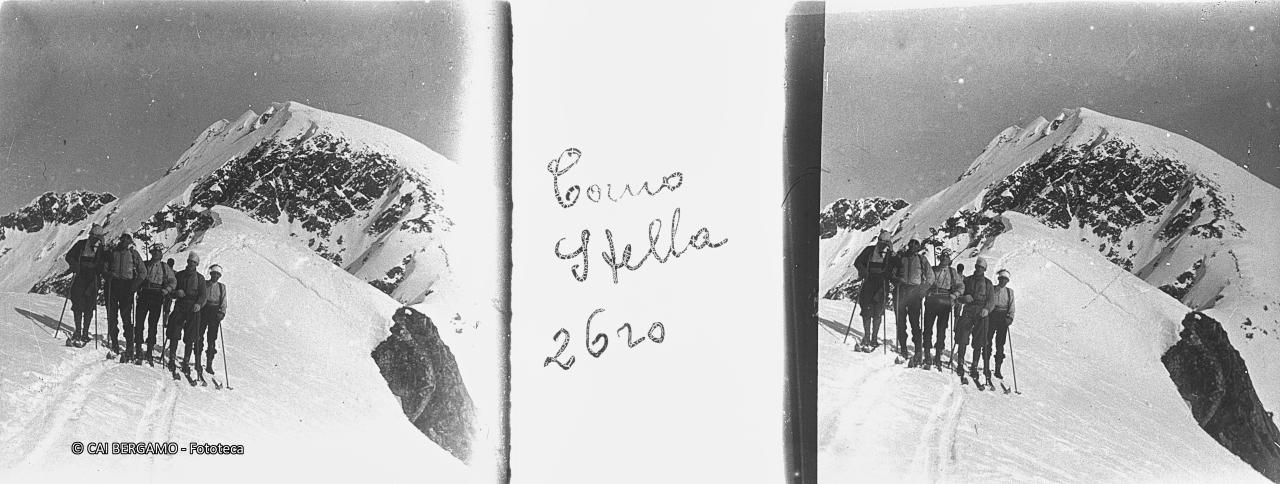 Corno
Stella
2620
© CAI BERGAMO - Fototeca